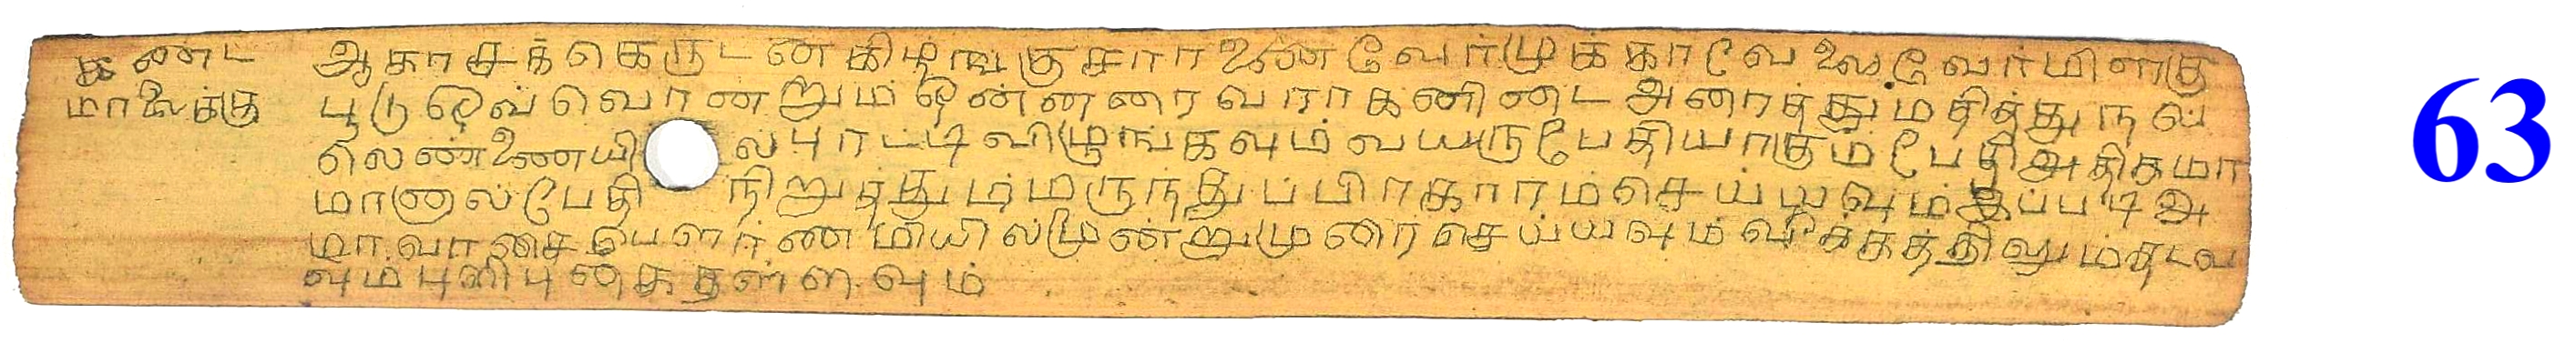 கண்ட ஆகாசக் கெருடன கிழங்கு சாரா ணை வேர் முக்கா வேலை வேர் மிளகு
மாலைக்கு பூடு ஒவ் வொானறும் ஒன்னரை வராகனிடை அரைத்து மதித்து நல்
லெண்ணெயில் புரட்டி விழுங்கவும் வயறு பேதியாகும் பேதி அதிகமா
மானால் பேதி நிறுத்தும் மருந்துப் பிரகாரம் செய்யவும் இப்படி அ
மாவாசை பெளர்ணமியில் முன்று முரை செய்யவும் வீக்கத்திலும் தடவ
வும் புளி புகை தள்ளவும்
63